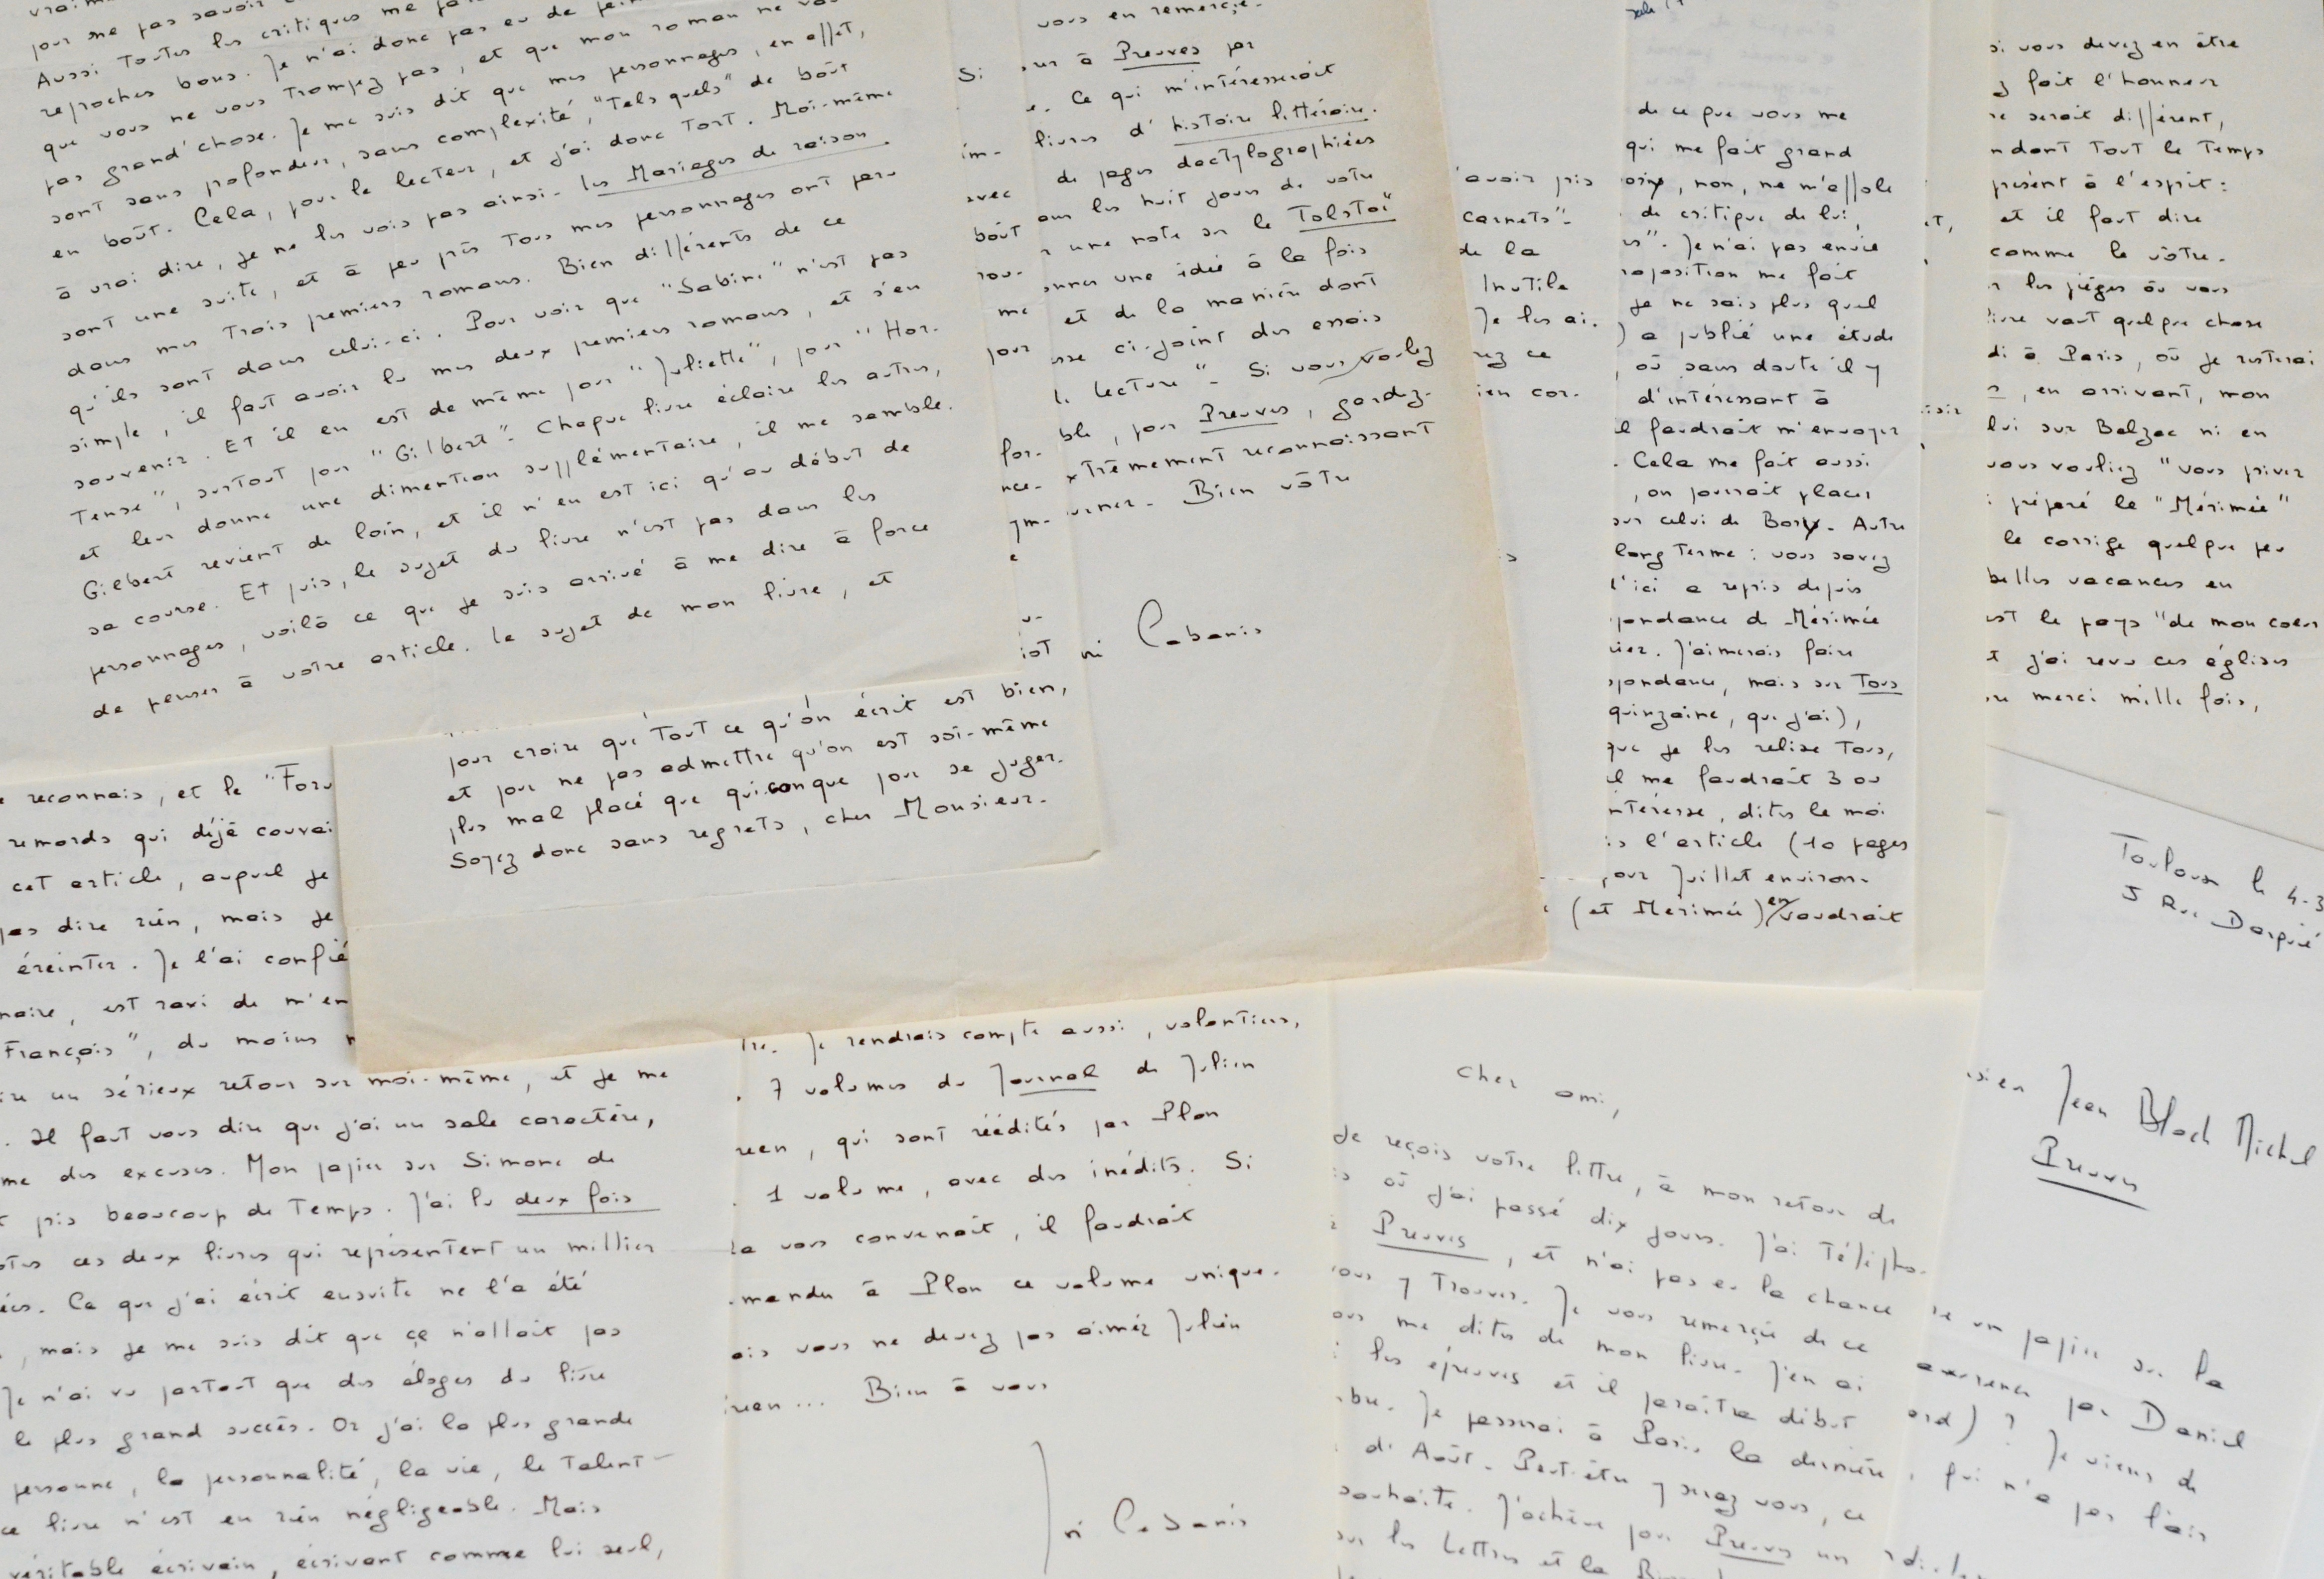 pour ne pas savoir
Aussi Toutes les critiques me
reproches bons. Je n'ai donc pas eu de
que vous ne vous Trompez pas, et que mon roman ne
pas grand'chose. Je me suis dit que mes personnages, en effet,
sont sans profondeur, sans complexité, "Tels quels" de bout
en bout. Cela, pour le lecteur, et j'ai donc Tort. Moi-même
à vrai dire, je ne les vois pas ainsi. les Mariages de raison
sont une suite, et à peu près Tous mes personnages ont paru
dans mes Trois premiers romans. Bien différents de ce
qu'ils sont dans celui-ci. Pour voir que "Sabine" n'est pas
simple, il faut avoir lu mes deux premiers romans, et s'en
souvenir. Et il en est de même pour "Juliette", pour "Hor-
Tense", surtout pour "Gilbert". Chaque livre éclaire les autres,
et leur donne une dimention supplémentaire, il me semble.
Gilbert revient de loin, et il n'en est ici qu'au début de
sa course. Et puis, le sujet du livre n'est pas dans les
personnages, voilà ce que je suis arrivé à me dire à force
de penser à votre article. le sujet de mon livre, et
pour croire que Tout ce qu'on écrit est bien,
et pour ne pas admettre qu'on est soi-même
plus mal placé que quiconque pour se juger.
Soyez donc sans regrets, cher Monsieur.
vous en remercie.
Si
sur à Preuves par
e. Ce qui m'intéresserait
im- livres d'histoire littéraire.
avec de pages dactylographiées
bout les huit jours de votre
une note sur le Tolstoï
rou- onner une idée à la fois
me et de la manière dont
pour sse ci-joint des essais
lecture". Si vous voulez
ble, pour Preuves, gardez-
for- xtrêmement reconnaissant
nce- Bien vôtre
ym-
e
u-
iot
Cabanis
avoir pris
carnets"-
de la
Inutile
Je les ai.
rez ce
ien cor-
de ce que vous me
qui me fait grand
, non, ne m'affole
de critique de lui,
rs". Je n'ai pas envie
roposition me fait
Je ne sais plus quel
) a publié une étude
, où sans doute il y
d'intéressant à
il faudrait m'envoyer
. Cela me fait aussi
, on pourrait placer
sur celui de Bory. Autre
long Terme : vous savez
d'ici a repris depuis
pondance de Mérimée
J'aimerais faire
spondance, mais sur Tous
quinzaine, que j'ai),
que je les relise Tous,
il me faudrait 3 ou
ntéresse, dites le moi
l'article (10 pages
pour Juillet environ.
(et Mérimée) en vaudrait
si vous devez en être
z fait l'honneur
re serait différent,
ndant Tout le Temps
présent à l'esprit :
et il faut dire
comme le vôtre.
les pièges où vous
livre vaut quelque chose
di à Paris, où je resterai
, en arrivant, mon
lui sur Balzac ni en
vous vouliez "vous priver
préparé le "Mérimée"
le corrige quelque peu
belles vacances en
est le pays "de mon cœur
j'ai revu ces églises
merci mille fois,
reconnais, et le "Foru
remords qui déjà couvai
cet article, auquel je
pas dire rien, mais je
éreinter. Je l'ai confié
naire, est ravi de m'en
François", du moins
ire un sérieux retour sur moi-même, et je me
. Il faut vous dire que j'ai un sale caractère,
me des excuses. Mon papier sur Simone de
pris beaucoup de Temps. J'ai lu deux fois
ces deux livres qui représentent un millier
Ce que j'ai écrit ensuite ne l'a été
, mais je me suis dit que ça n'allait pas
Je n'ai vu partout que des éloges du livre
le plus grand succès. Or j'ai la plus grande
personne, la personnalité, la vie, le Talent
ce livre n'est en rien négligeable. Mais
véritable écrivain, écrivant comme lui seul,
Je rendrais compte aussi, volontiers,
7 volumes du Journal de Julien
reen, qui sont réédités par Plon
1 volume, avec des inédits. Si
la vous convenait, il faudrait
mander à Plon ce volume unique.
ais vous ne devez pas aimer Julien
reen... Bien à vous
Cabanis
Cher ami,
Je reçois votre lettre, à mon retour de
où j'ai passé dix jours. J'ai Télépho-
Preuves, et n'ai pas eu la chance
ous y Trouver. Je vous remercie de ce
ous me dites de mon livre. J'en ai
les épreuves et il paraîtra début
bre. Je passerai à Paris la dernière
d'Août. Peut-être y serez vous, ce
souhaite. J'achève pour Preuves un
sur les Lettres et la
Toulouse le 4-3
5 Rue Darquié
Jean Bloch Michel
Preuves
un papier sur la
par Daniel
ord) ? Je viens de
qui n'a pas l'air